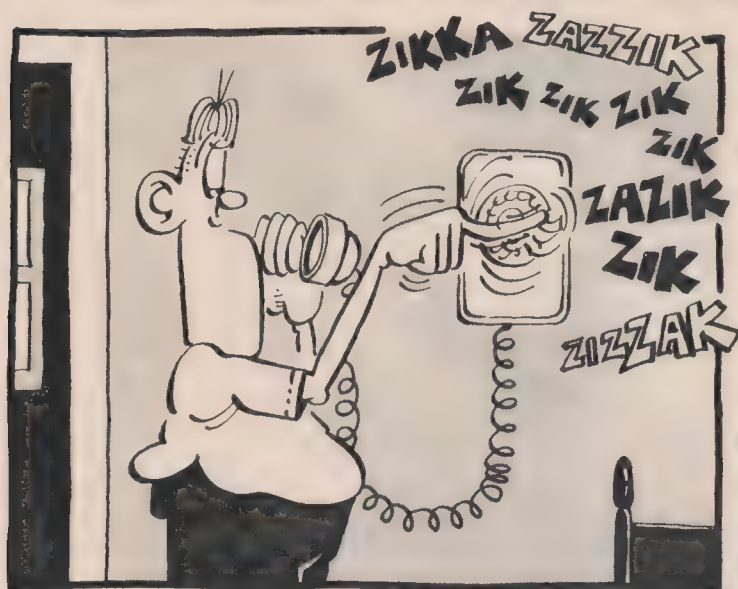 ZIKKA ZAZZIK
ZIK ZIK ZIK
ZIK
ZAZIK
ZIK
ZIZZAK